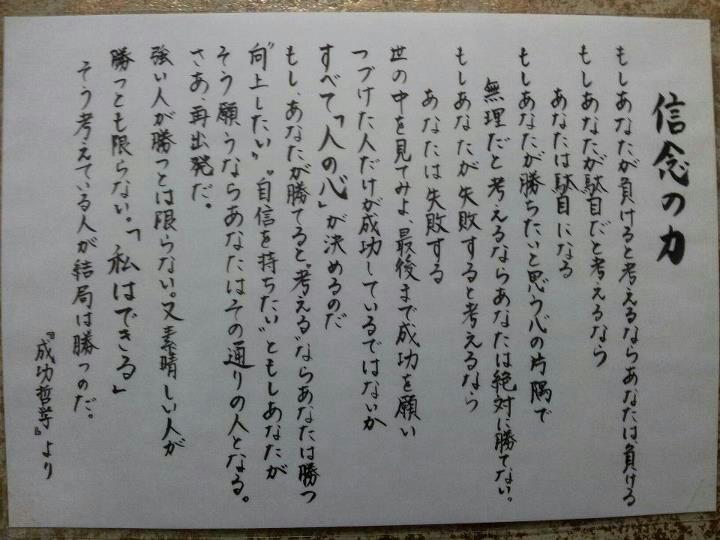 信念の力
もしあなたが負けると考えるならあなたは負ける
もしあなたが駄目だと考えるなら
あなたは駄目になる
もしあなたが勝ちたいと思う心の片隅で
無理だと考えるならあなたは絶対に勝てない。
もしあなたが失敗すると考えるなら
あなたは失敗する
世の中を見てみよ、最後まで成功を願い
つづけた人だけが成功しているではないか
すべて「人の心」が決めるのだ
もし、あなたが勝てると“考える”ならあなたは勝つ
“向上したい”。“自信を持ちたい”ともしあなたが
そう願うならあなたはその通りの人となる。
さあ、再出発だ。
強い人が勝つとは限らない。又素晴しい人が
勝つとも限らない。「私はできる」
そう考えている人が結局は勝つのだ。
『成功哲学』より